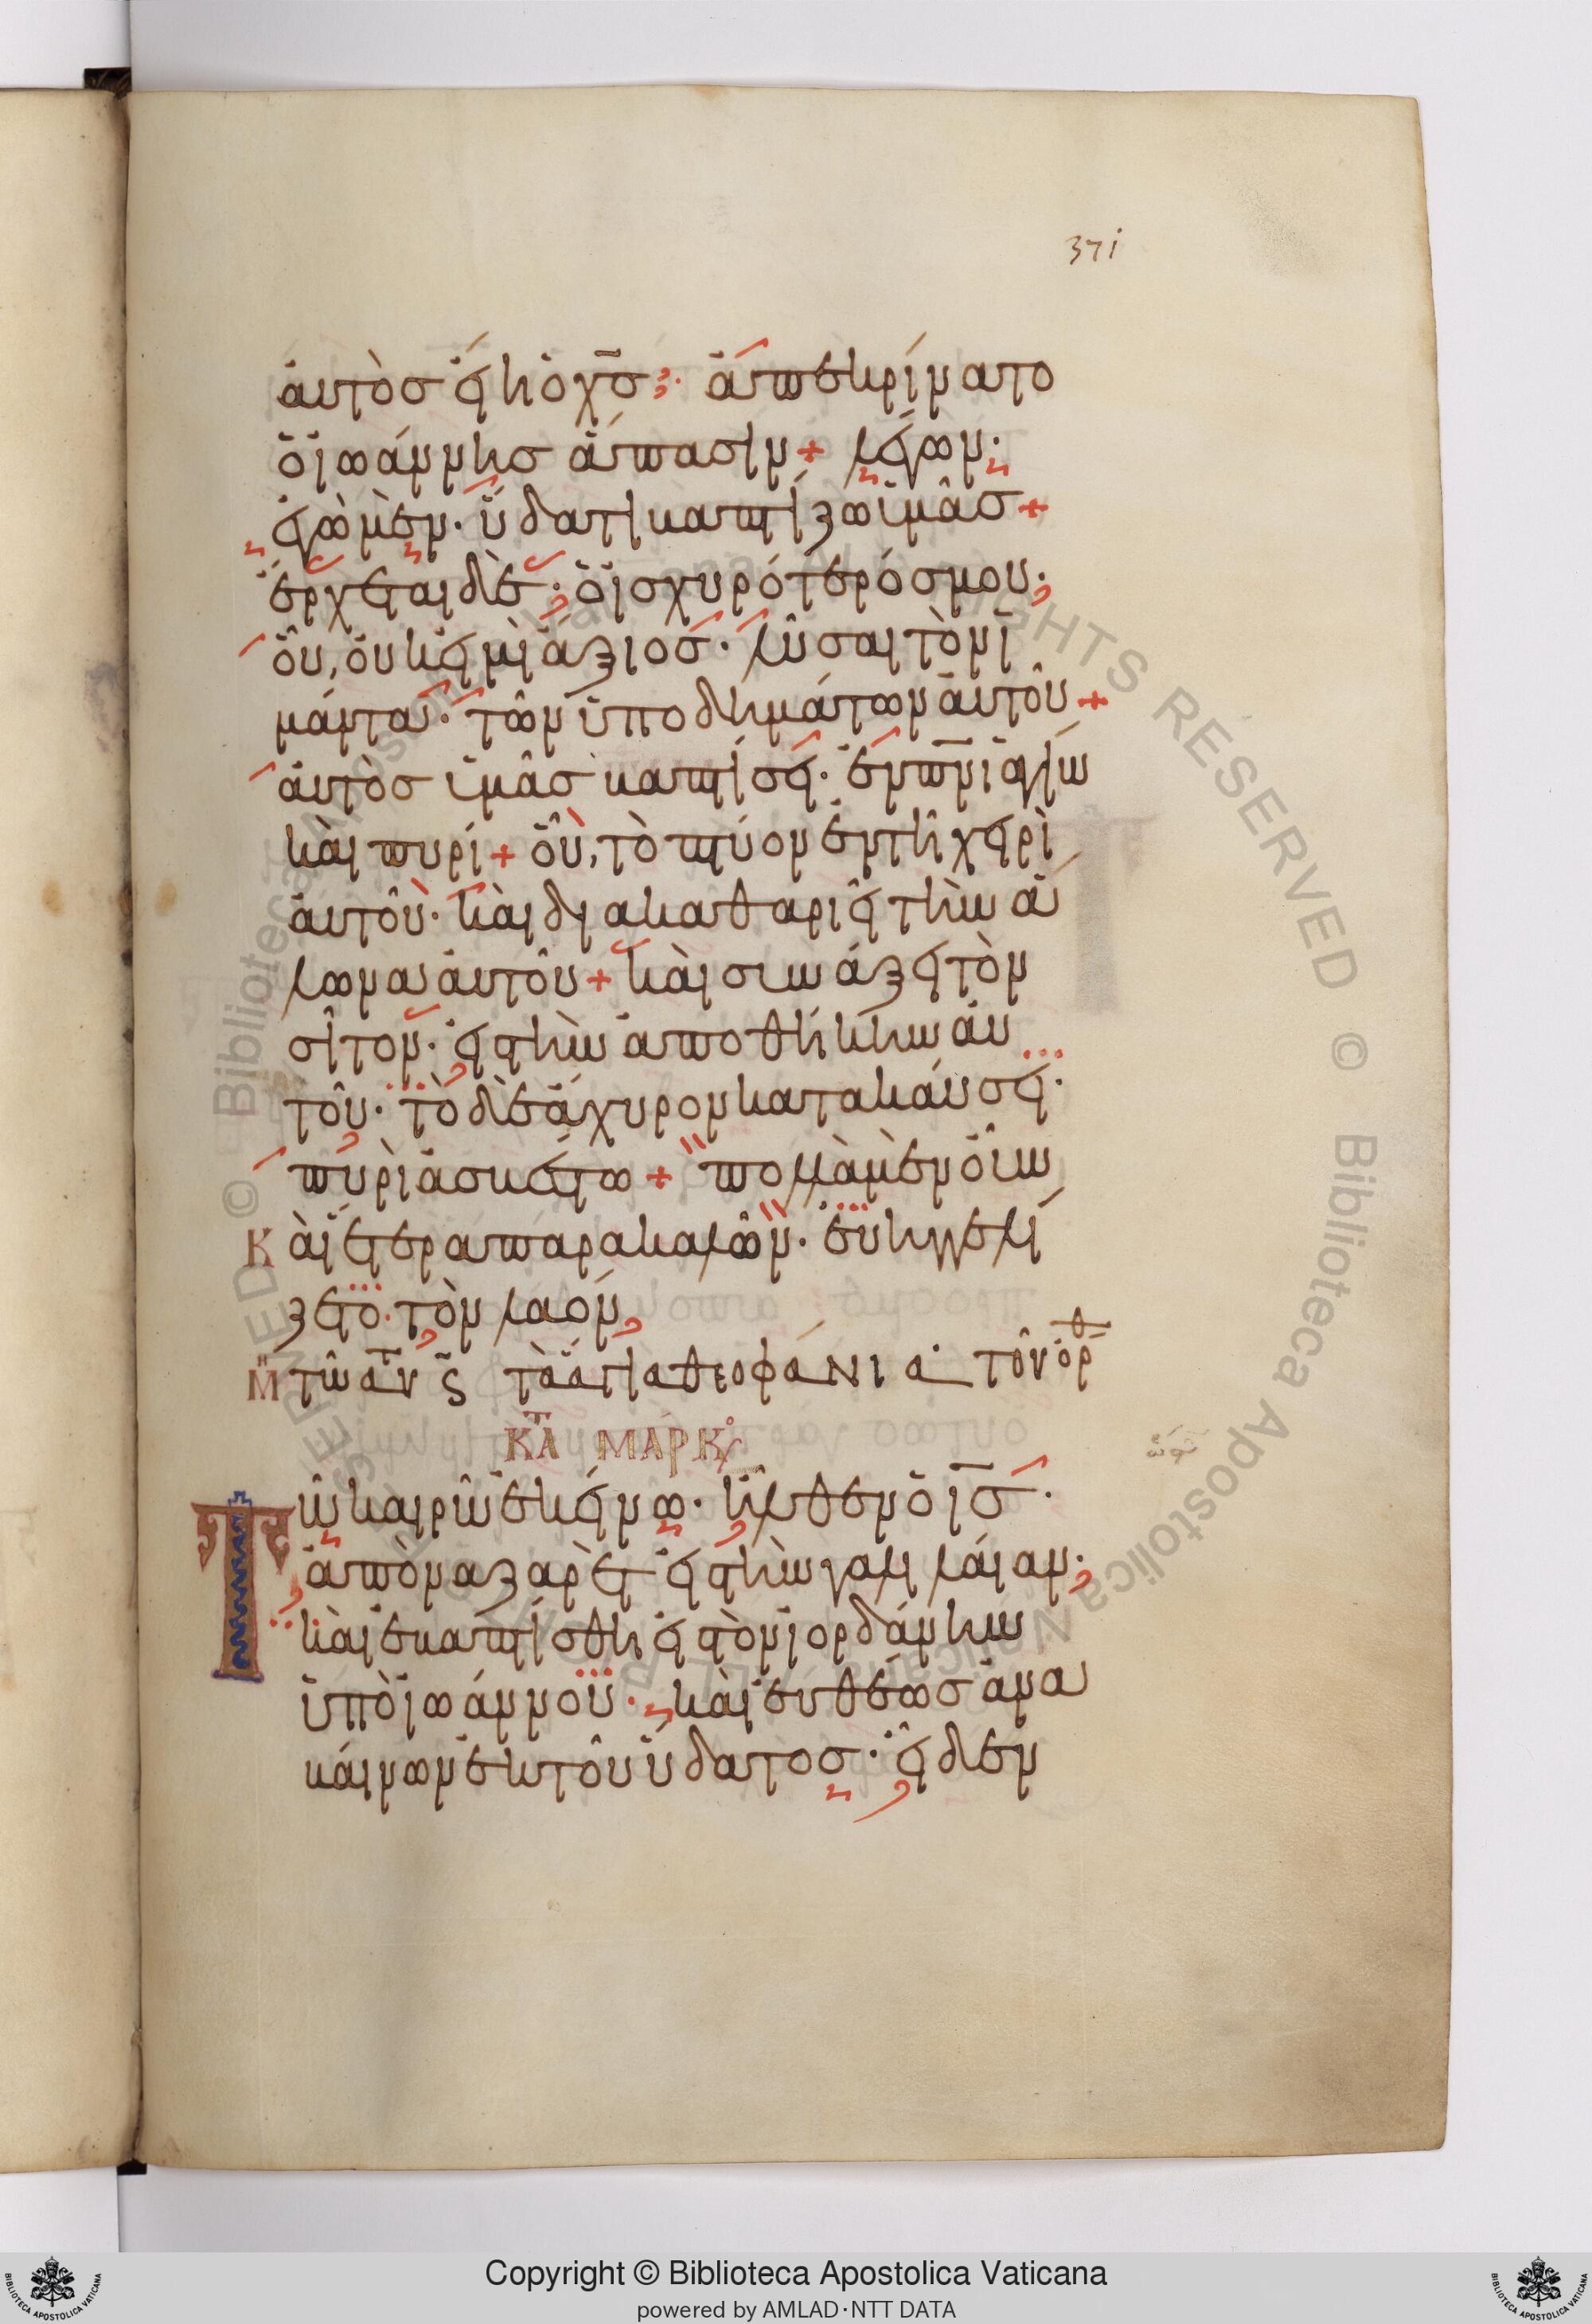 371
ἀυτὸσ ἔιη ὁ χ̅σ̅· ἀπεκρίνατο
ὁ ἰωάννησ ἅπασιν + λέγων·
ἐγὼ μὲν· ὕδατι βαπτίζω ὑμᾶσ +
ἔρχεται δὲ· ὁ ἰσχυρότερόσ μου·
ὃυ, ὀυκ ἐιμὶ ἄξιοσ· λῦσαι τὸν ἱ
μάντα· τῶν ὑποδημάτων ἀυτοῦ +
ἀυτὸσ ὑμᾶσ βαπτίσει· ἐν π̅ν̅ι ἁγίω
κὰι πυρί + ὃυ, τὸ πτύον ἐν τῆ χειρὶ
ἀυτοῦ· κὰι διακαθαριεῖ τὴν ἅ
λωνα ἀυτοῦ + κὰι συνάξει τὸν
σῖτον· ἐισ τὴν ἀποθήκην ἀυ
τοῦ· τὸ δὲ ἄχυρον κατακάυσει·
πυρὶ ἀσβέστω + πολλὰ μὲν ὀῦν
Κὰι ἕτερα παρακαλῶν· ἐυηγγελί
ζετο· τὸν λαόν,
Μ τῶ ἀυ ϛ τὰ ἅγια θεοφάνια· τοῦ ὄρθ
ΚΑΤ ΜΑΡΚ
Τῶ καιρῶ ἐκείνω· ἦλθεν ὁ ἰ̅σ̅·
ἀπὸ ναζαρὲτ ἐισ τὴν γαλιλάιαν·
κὰι ἐβαπτίσθη ἐισ τὸν ἰορδάνην
ὑπὸ ἰωάννου· κὰι ἐυθέωσ ἀνα
βάινων ἐκ τοῦ ὕδατοσ· ἐῖδεν
Copyright © Biblioteca Apostolica Vaticana
powered by AMLAD·NTT DATA